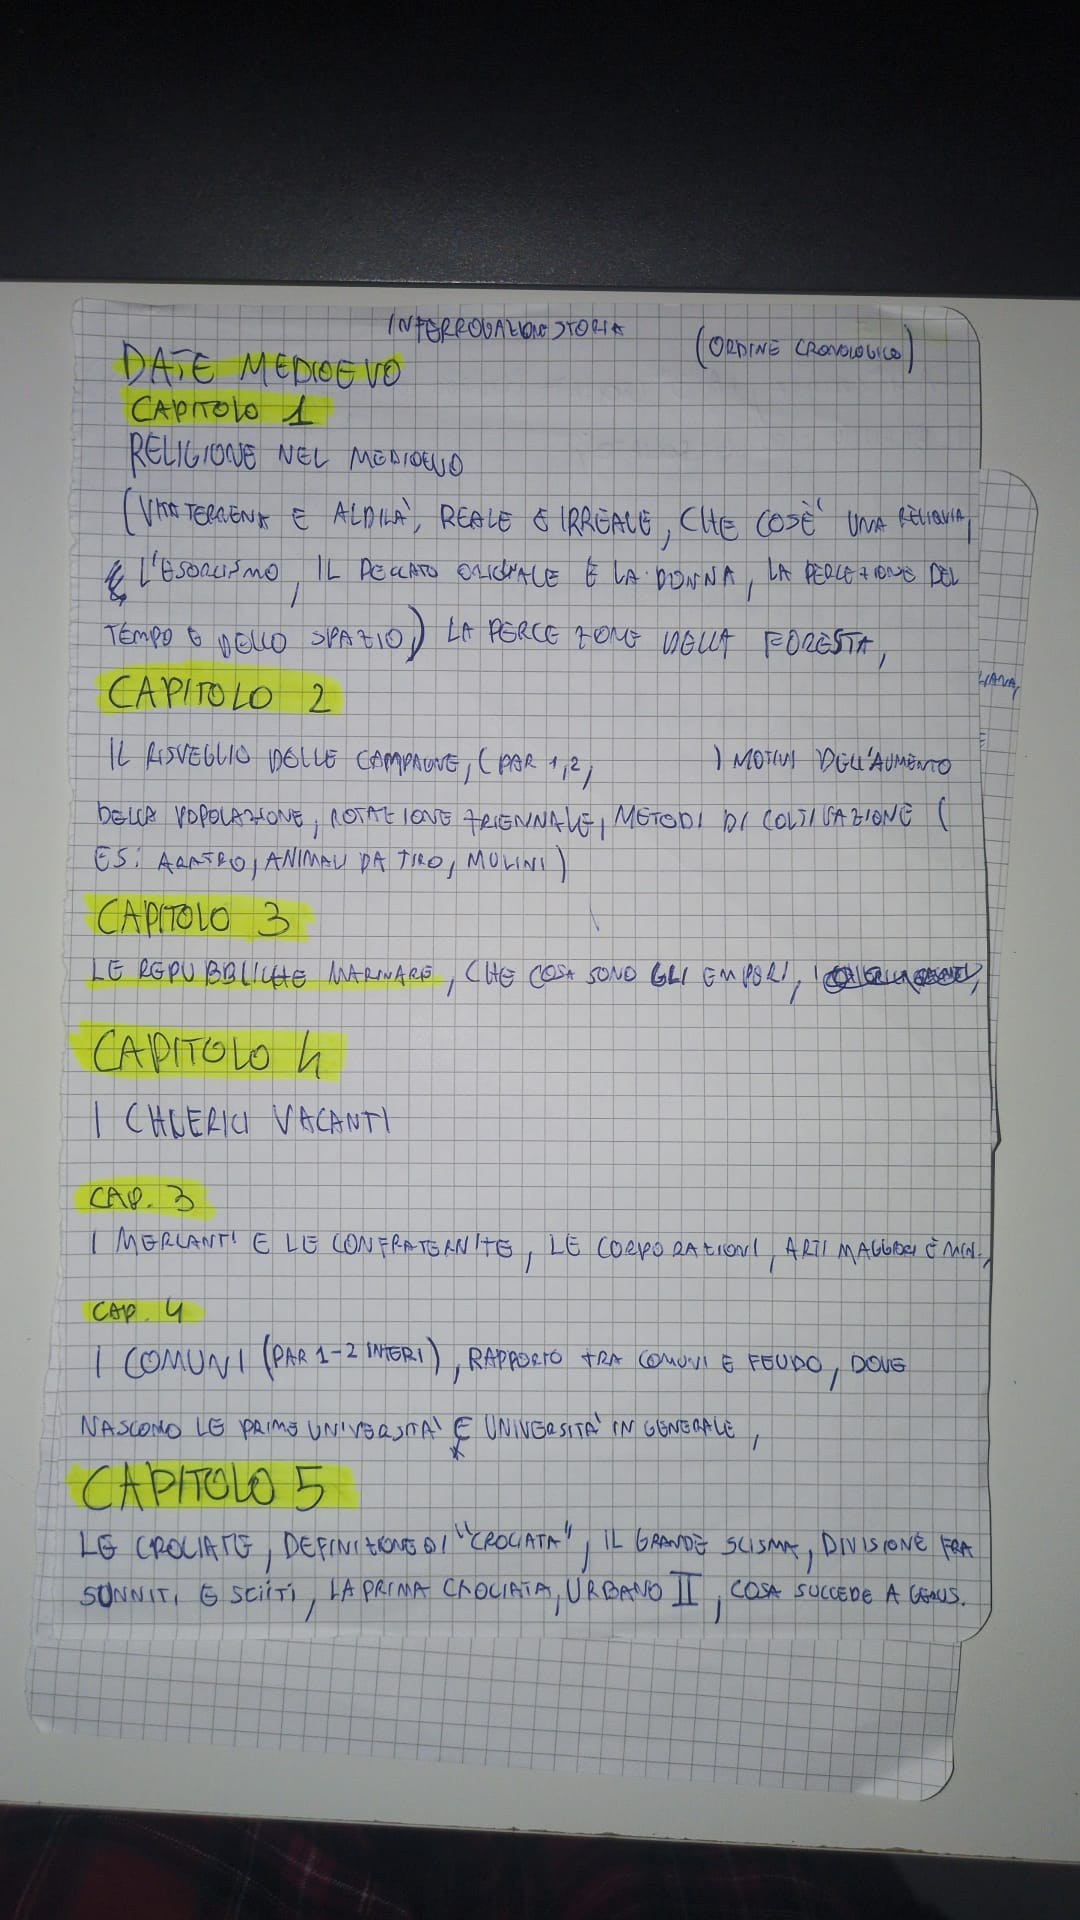 INTERROGAZIONE STORIA
(ORDINE CRONOLOGICO)
DATE MEDIOEVO
CAPITOLO 1
RELIGIONE NEL MEDIOEVO
(VITA TERRENA E ALDILÀ, REALE E IRREALE, CHE COSÈ UNA RELIQUIA,
L'ESORCISMO, IL PECCATO ORIGINALE E LA DONNA, LA PERCEZIONE DEL
TEMPO E DELLO SPAZIO) LA PERCEZIONE DELLA FORESTA,
CAPITOLO 2
IL RISVEGLIO DELLE CAMPAGNE, (PAR 1,2, ) MOTIVI DELL'AUMENTO
DELLA POPOLAZIONE, ROTAZIONE TRIENNALE, METODI DI COLTIVAZIONE (
ES: ARATRO, ANIMALI DA TIRO, MULINI)
CAPITOLO 3
LE REPUBBLICHE MARINARE, CHE COSA SONO GLI EMPORI,
CAPITOLO 4
I CHIERICI VACANTI
CAP. 3
I MERCANTI E LE CONFRATERNITE, LE CORPORAZIONI, ARTI MAGGIORI E MIN.,
CAP. 4
I COMUNI (PAR 1-2 INTERI), RAPPORTO TRA COMUNI E FEUDO, DOVE
NASCONO LE PRIME UNIVERSITÀ E UNIVERSITÀ IN GENERALE,
CAPITOLO 5
LE CROCIATE, DEFINIZIONE DI "CROCIATA", IL GRANDE SCISMA, DIVISIONE FRA
SUNNITI E SCIITI, LA PRIMA CROCIATA, URBANO II, COSA SUCCEDE A GERUS.